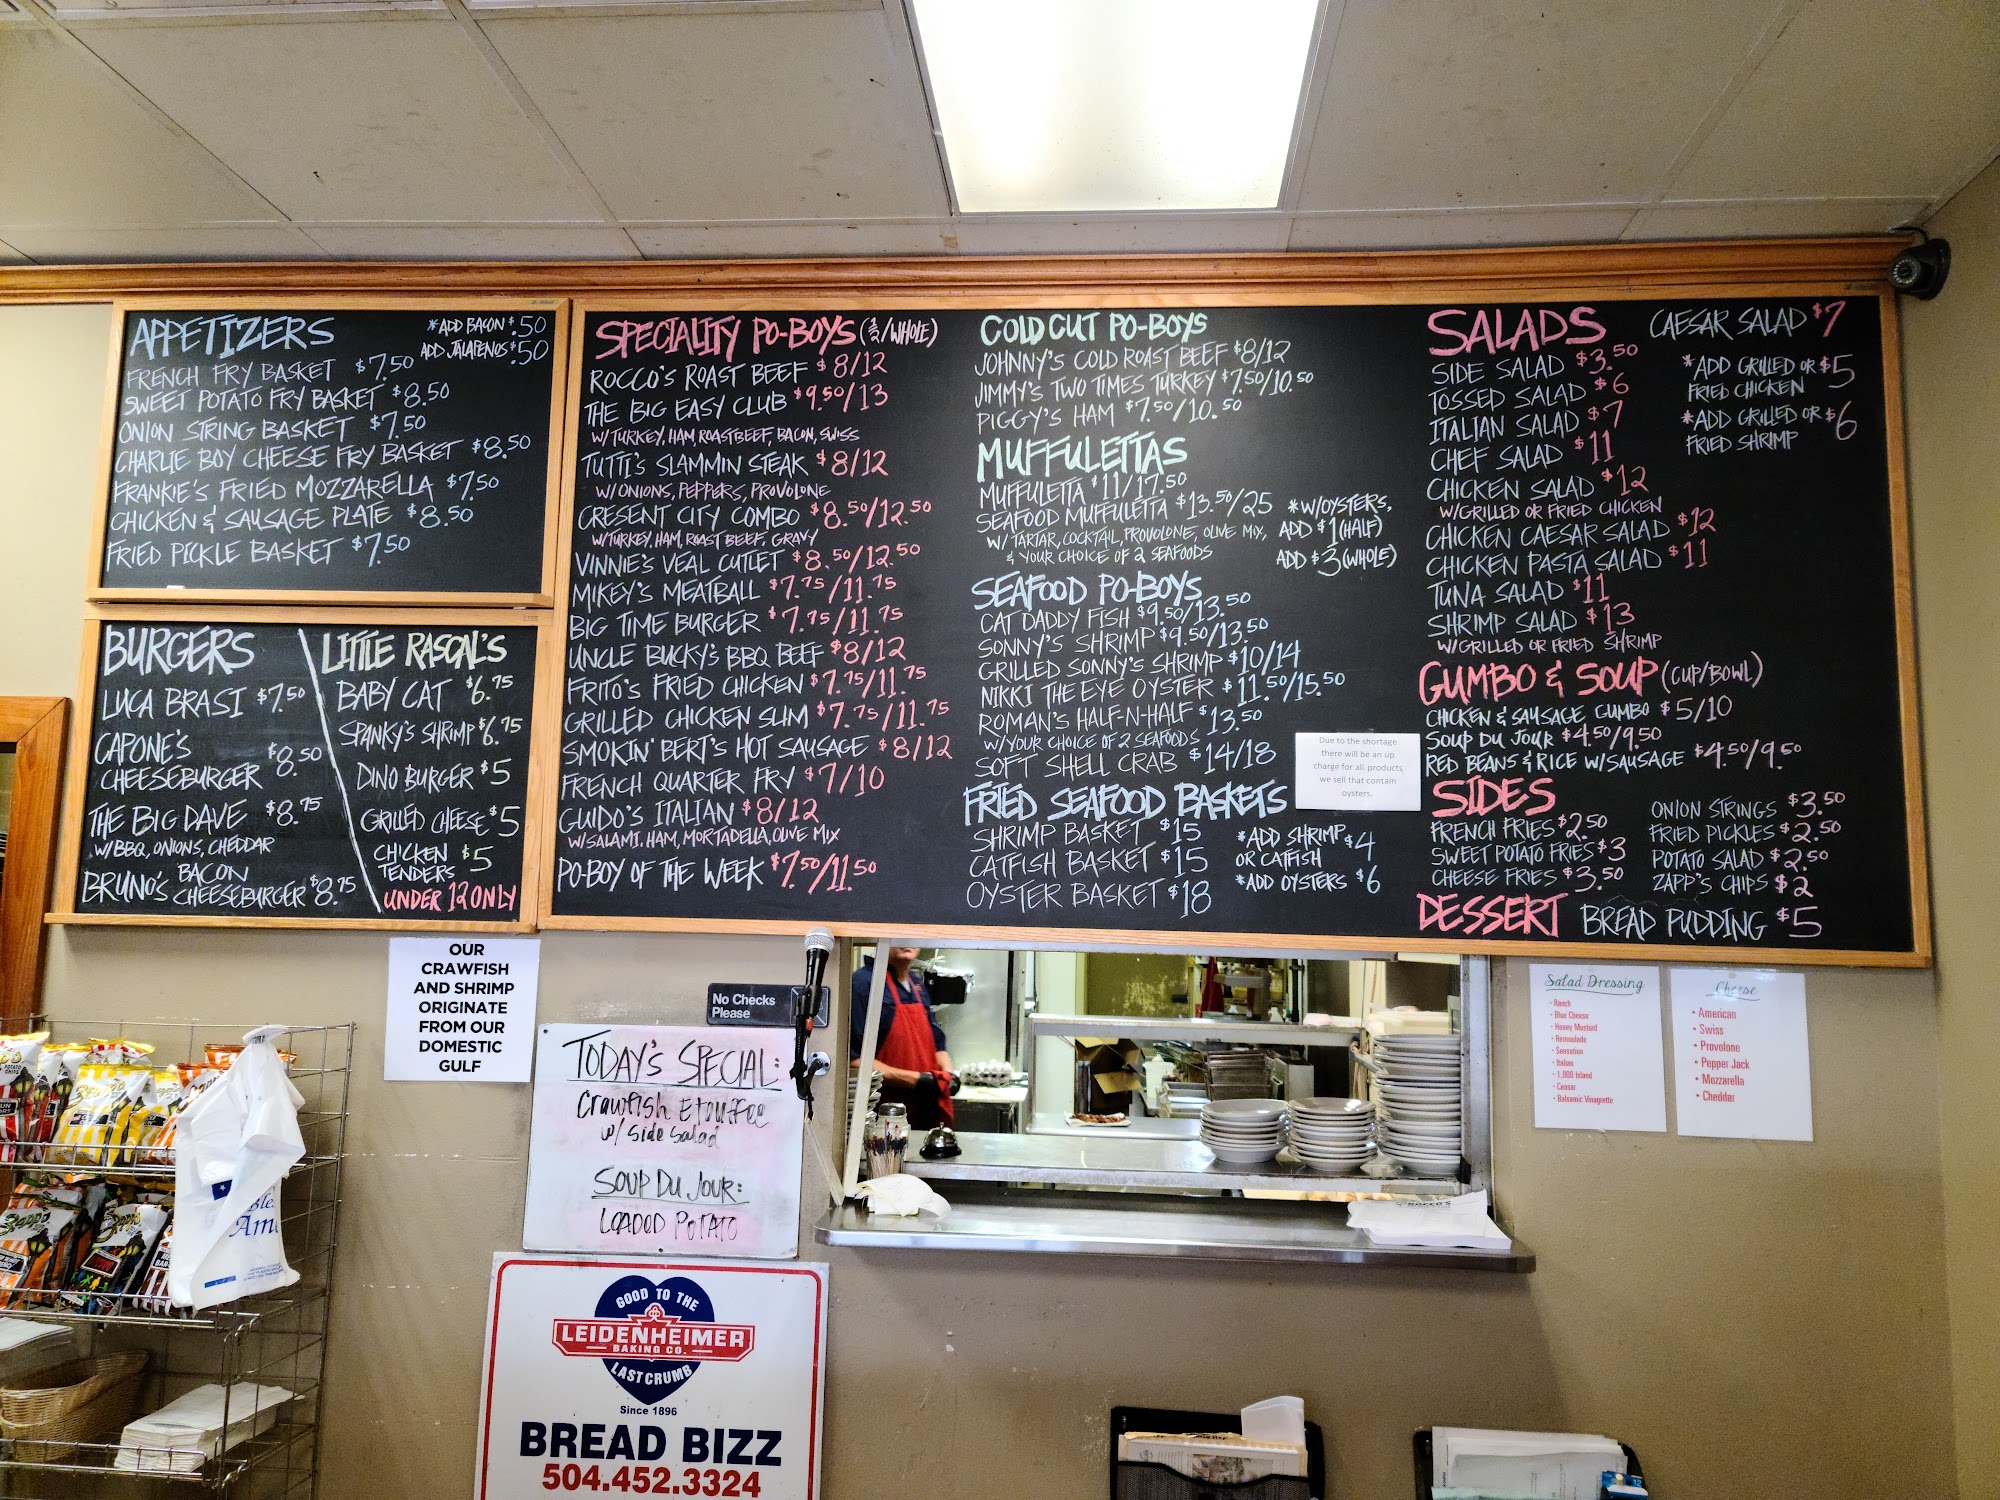 APPETIZERS
*ADD BACON $.50
ADD JALAPENOS $.50
FRENCH FRY BASKET $7.50
SWEET POTATO FRY BASKET $8.50
ONION STRING BASKET $7.50
CHARLIE BOY CHEESE FRY BASKET $8.50
FRANKIE'S FRIED MOZZARELLA $7.50
CHICKEN & SAUSAGE PLATE $8.50
FRIED PICKLE BASKET $7.50
BURGERS
LUCA BRASI $7.50
CAPONE'S
CHEESEBURGER $8.50
THE BIG DAVE $8.75
W/BBQ, ONIONS, CHEDDAR
BRUNO'S BACON
CHEESEBURGER $8.75
LITTLE RASCAL'S
BABY CAT $6.75
SPANKY'S SHRIMP $6.75
DINO BURGER $5
GRILLED CHEESE $5
CHICKEN
TENDERS $5
UNDER 12 ONLY
SPECIALITY PO-BOYS (1/2/WHOLE)
ROCCO'S ROAST BEEF $8/12
THE BIG EASY CLUB $9.50/13
W/TURKEY, HAM, ROAST BEEF, BACON, SWISS
TUTTI'S SLAMMIN STEAK $8/12
W/ONIONS, PEPPERS, PROVOLONE
CRESENT CITY COMBO $8.50/12.50
W/TURKEY, HAM, ROAST BEEF, GRAVY
VINNIE'S VEAL CUTLET $8.50/12.50
MIKEY'S MEATBALL $7.75/11.75
BIG TIME BURGER $7.75/11.75
UNCLE BUCKY'S BBQ BEEF $8/12
FRITO'S FRIED CHICKEN $7.75/11.75
GRILLED CHICKEN SLIM $7.75/11.75
SMOKIN' BERT'S HOT SAUSAGE $8/12
FRENCH QUARTER FRY $7/10
GUIDO'S ITALIAN $8/12
W/SALAMI, HAM, MORTADELLA, OLIVE MIX
PO-BOY OF THE WEEK $7.50/11.50
COLD CUT PO-BOYS
JOHNNY'S COLD ROAST BEEF $8/12
JIMMY'S TWO TIMES TURKEY $7.50/10.50
PIGGY'S HAM $7.50/10.50
MUFFULETTAS
MUFFULETTA $11/17.50
SEAFOOD MUFFULETTA $13.50/25
W/ TARTAR, COCKTAIL, PROVOLONE, OLIVE MIX,
& YOUR CHOICE OF 2 SEAFOODS
*W/OYSTERS,
ADD $1 (HALF)
ADD $3 (WHOLE)
SEAFOOD PO-BOYS
CAT DADDY FISH $9.50/13.50
SONNY'S SHRIMP $9.50/13.50
GRILLED SONNY'S SHRIMP $10/14
NIKKI THE EYE OYSTER $11.50/15.50
ROMAN'S HALF-N-HALF $13.50
W/YOUR CHOICE OF 2 SEAFOODS
SOFT SHELL CRAB $14/18
FRIED SEAFOOD BASKETS
SHRIMP BASKET $15
CATFISH BASKET $15
OYSTER BASKET $18
*ADD SHRIMP $4
OR CATFISH
*ADD OYSTERS $6
Due to the shortage
there will be an up
charge for all products
we sell that contain
oysters.
SALADS
SIDE SALAD $3.50
TOSSED SALAD $6
ITALIAN SALAD $7
CHEF SALAD $11
CHICKEN SALAD $12
W/GRILLED OR FRIED CHICKEN
CHICKEN CAESAR SALAD $12
CHICKEN PASTA SALAD $11
TUNA SALAD $11
SHRIMP SALAD $13
W/GRILLED OR FRIED SHRIMP
CAESAR SALAD $7
*ADD GRILLED OR $5
FRIED CHICKEN
*ADD GRILLED OR $6
FRIED SHRIMP
GUMBO & SOUP (CUP/BOWL)
CHICKEN & SAUSAGE GUMBO $5/10
SOUP DU JOUR $4.50/9.50
RED BEANS & RICE W/SAUSAGE $4.50/9.50
SIDES
FRENCH FRIES $2.50
SWEET POTATO FRIES $3
CHEESE FRIES $3.50
ONION STRINGS $3.50
FRIED PICKLES $2.50
POTATO SALAD $2.50
ZAPP'S CHIPS $2
DESSERT BREAD PUDDING $5
OUR
CRAWFISH
AND SHRIMP
ORIGINATE
FROM OUR
DOMESTIC
GULF
No Checks
Please
TODAY'S SPECIAL:
Crawfish Etouffee
w/ side salad
SOUP DU JOUR:
LOADED POTATO
Salad Dressing
• Ranch
• Blue Cheese
• Honey Mustard
• Remoulade
• Sensation
• Italian
• 1,000 Island
• Ceasar
• Balsamic Vinagrette
Cheese
• American
• Swiss
• Provolone
• Pepper Jack
• Mozzarella
• Cheddar
GOOD TO THE
LEIDENHEIMER
BAKING CO.
LAST CRUMB
Since 1896
BREAD BIZZ
504.452.3324